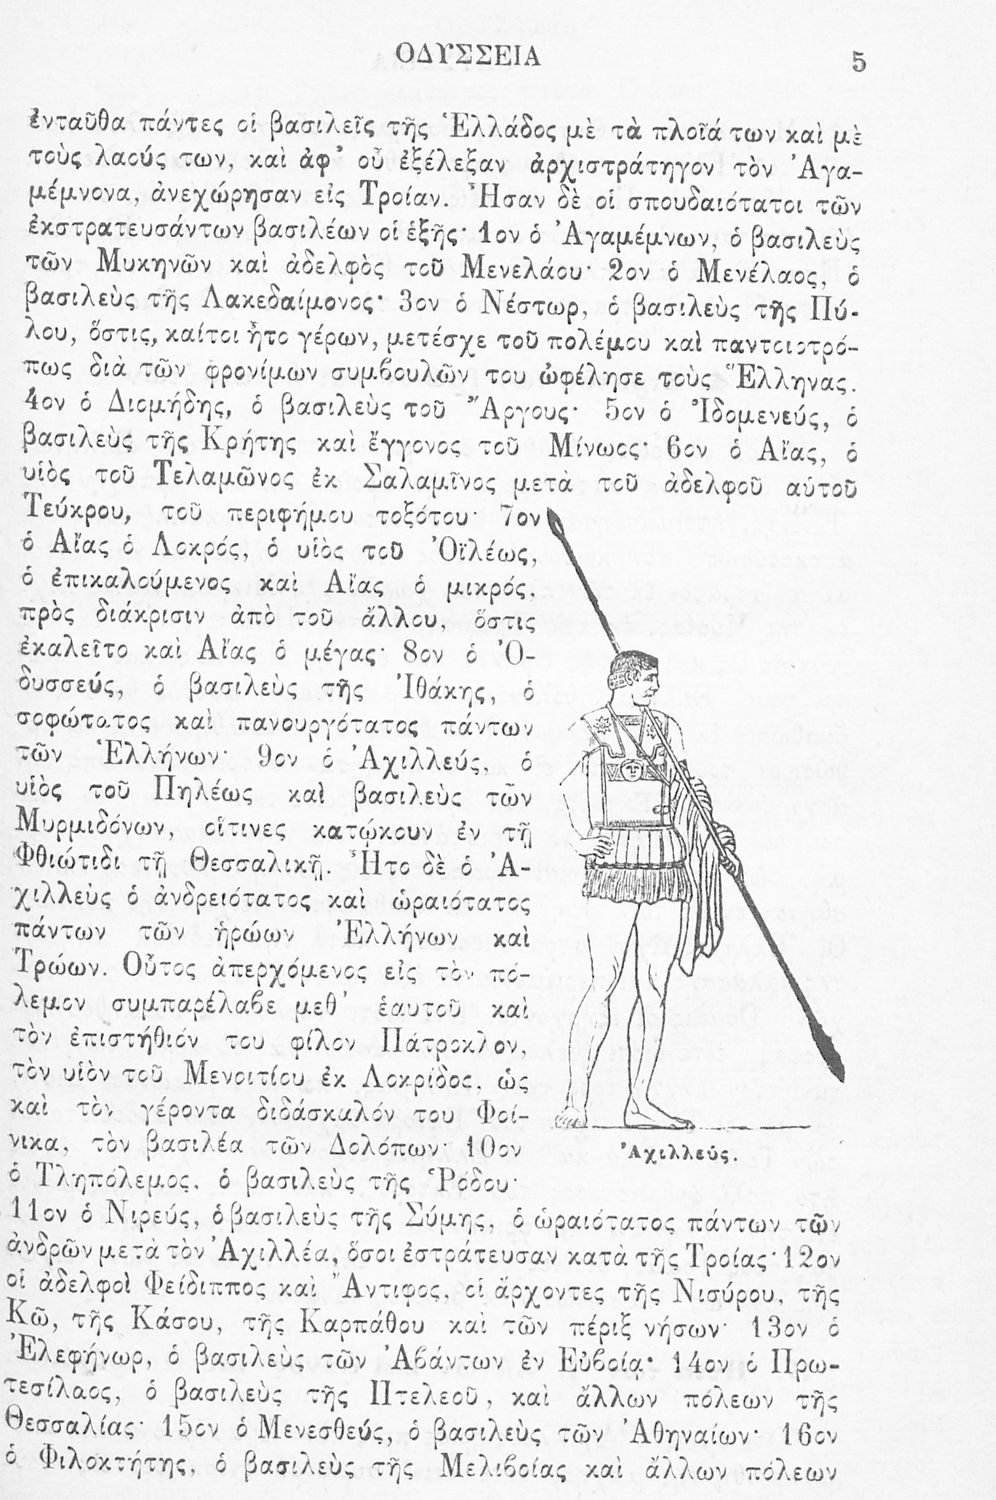 ΟΔΥΣΣΕΙΑ 5
ἐνταῦθα πάντες οἱ βασιλεῖς τῆς Ἑλλάδος μὲ τὰ πλοῖά των καὶ μὲ
τοὺς λαούς των, καὶ ἀφ' οὗ ἐξέλεξαν ἀρχιστράτηγον τὸν Ἀγα-
μέμνονα, ἀνεχώρησαν εἰς Τροίαν. Ἦσαν δὲ οἱ σπουδαιότατοι τῶν
ἐκστρατευσάντων βασιλέων οἱ ἑξῆς· 1ον ὁ Ἀγαμέμνων, ὁ βασιλεὺς
τῶν Μυκηνῶν καὶ ἀδελφὸς τοῦ Μενελάου· 2ον ὁ Μενέλαος, ὁ
βασιλεὺς τῆς Λακεδαίμονος· 3ον ὁ Νέστωρ, ὁ βασιλεὺς τῆς Πύ-
λου, ὅστις, καίτοι ἦτο γέρων, μετέσχε τοῦ πολέμου καὶ παντοιοτρό-
πως διὰ τῶν φρονίμων συμβουλῶν του ὠφέλησε τοὺς Ἕλληνας.
4ον ὁ Διομήδης, ὁ βασιλεὺς τοῦ Ἄργους· 5ον ὁ Ἰδομενεύς, ὁ
βασιλεὺς τῆς Κρήτης καὶ ἔγγονος τοῦ Μίνωος· 6ον ὁ Αἴας, ὁ
υἱὸς τοῦ Τελαμῶνος ἐκ Σαλαμῖνος μετὰ τοῦ ἀδελφοῦ αὐτοῦ
Τεύκρου, τοῦ περιφήμου τοξότου· 7ον
ὁ Αἴας ὁ Λοκρός, ὁ υἱὸς τοῦ Ὀϊλέως,
ὁ ἐπικαλούμενος καὶ Αἴας ὁ μικρός,
πρὸς διάκρισιν ἀπὸ τοῦ ἄλλου, ὅστις
ἐκαλεῖτο καὶ Αἴας ὁ μέγας· 8ον ὁ Ὀ-
δυσσεύς, ὁ βασιλεὺς τῆς Ἰθάκης, ὁ
σοφώτατος καὶ πανουργότατος πάντων
τῶν Ἑλλήνων· 9ον ὁ Ἀχιλλεύς, ὁ
υἱὸς τοῦ Πηλέως καὶ βασιλεὺς τῶν
Μυρμιδόνων, οἵτινες κατῴκουν ἐν τῇ
Φθιώτιδι τῇ Θεσσαλικῇ. Ἦτο δὲ ὁ Ἀ-
χιλλεὺς ὁ ἀνδρειότατος καὶ ὡραιότατος
πάντων τῶν ἡρώων Ἑλλήνων καὶ
Τρώων. Οὗτος ἀπερχόμενος εἰς τὸν πό-
λεμον συμπαρέλαβε μεθ' ἑαυτοῦ καὶ
τὸν ἐπιστήθιόν του φίλον Πάτροκλον,
τὸν υἱὸν τοῦ Μενοιτίου ἐκ Λοκρίδος, ὡς
καὶ τὸν γέροντα διδάσκαλόν του Φοί-
νικα, τὸν βασιλέα τῶν Δολόπων· 10ον
ὁ Τληπόλεμος, ὁ βασιλεὺς τῆς Ῥόδου·
Ἀχιλλεύς.
11ον ὁ Νιρεύς, ὁ βασιλεὺς τῆς Σύμης, ὁ ὡραιότατος πάντων τῶν
ἀνδρῶν μετὰ τὸν Ἀχιλλέα, ὅσοι ἐστράτευσαν κατὰ τῆς Τροίας· 12ον
οἱ ἀδελφοὶ Φείδιππος καὶ Ἄντιφος, οἱ ἄρχοντες τῆς Νισύρου, τῆς
Κῶ, τῆς Κάσου, τῆς Καρπάθου καὶ τῶν πέριξ νήσων· 13ον ὁ
Ἐλεφήνωρ, ὁ βασιλεὺς τῶν Ἀβάντων ἐν Εὐβοίᾳ· 14ον ὁ Πρω-
τεσίλαος, ὁ βασιλεὺς τῆς Πτελεοῦ, καὶ ἄλλων πόλεων τῆς
Θεσσαλίας· 15ον ὁ Μενεσθεύς, ὁ βασιλεὺς τῶν Ἀθηναίων· 16ον
ὁ Φιλοκτήτης, ὁ βασιλεὺς τῆς Μελιβοίας καὶ ἄλλων πόλεων